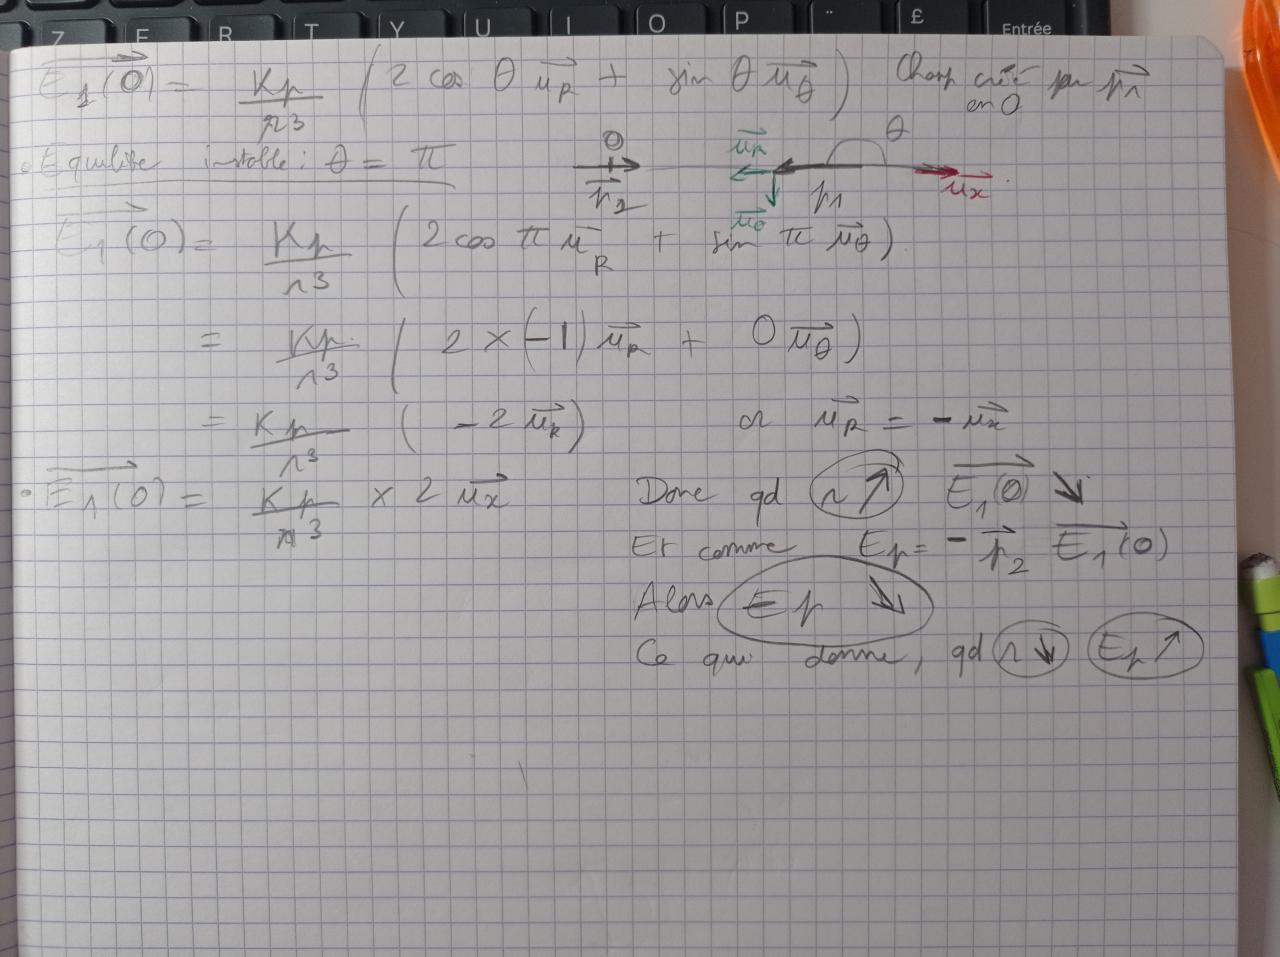 Z E R T Y U I O P ¨ £ Entrée
E₁(0) = Kp/r³ ( 2 cos θ u_R + sin θ u_θ ) Champ créé par p₁
en O
• Equilibre instable : θ = π
O p₂ u_R u_θ p₁ θ u_x
E₁(0) = Kp/r³ ( 2 cos π u_R + sin π u_θ )
= Kp/r³ ( 2 × (-1) u_R + 0 u_θ )
= Kp/r³ ( - 2 u_R ) or u_R = - u_x
• E₁(0) = Kp/r³ × 2 u_x Donc qd r ↗ E₁(0) ↘
Et comme Ep = - p₂ E₁(0)
Alors Ep ↘
Ce qui donne, qd r ↘ Ep ↗